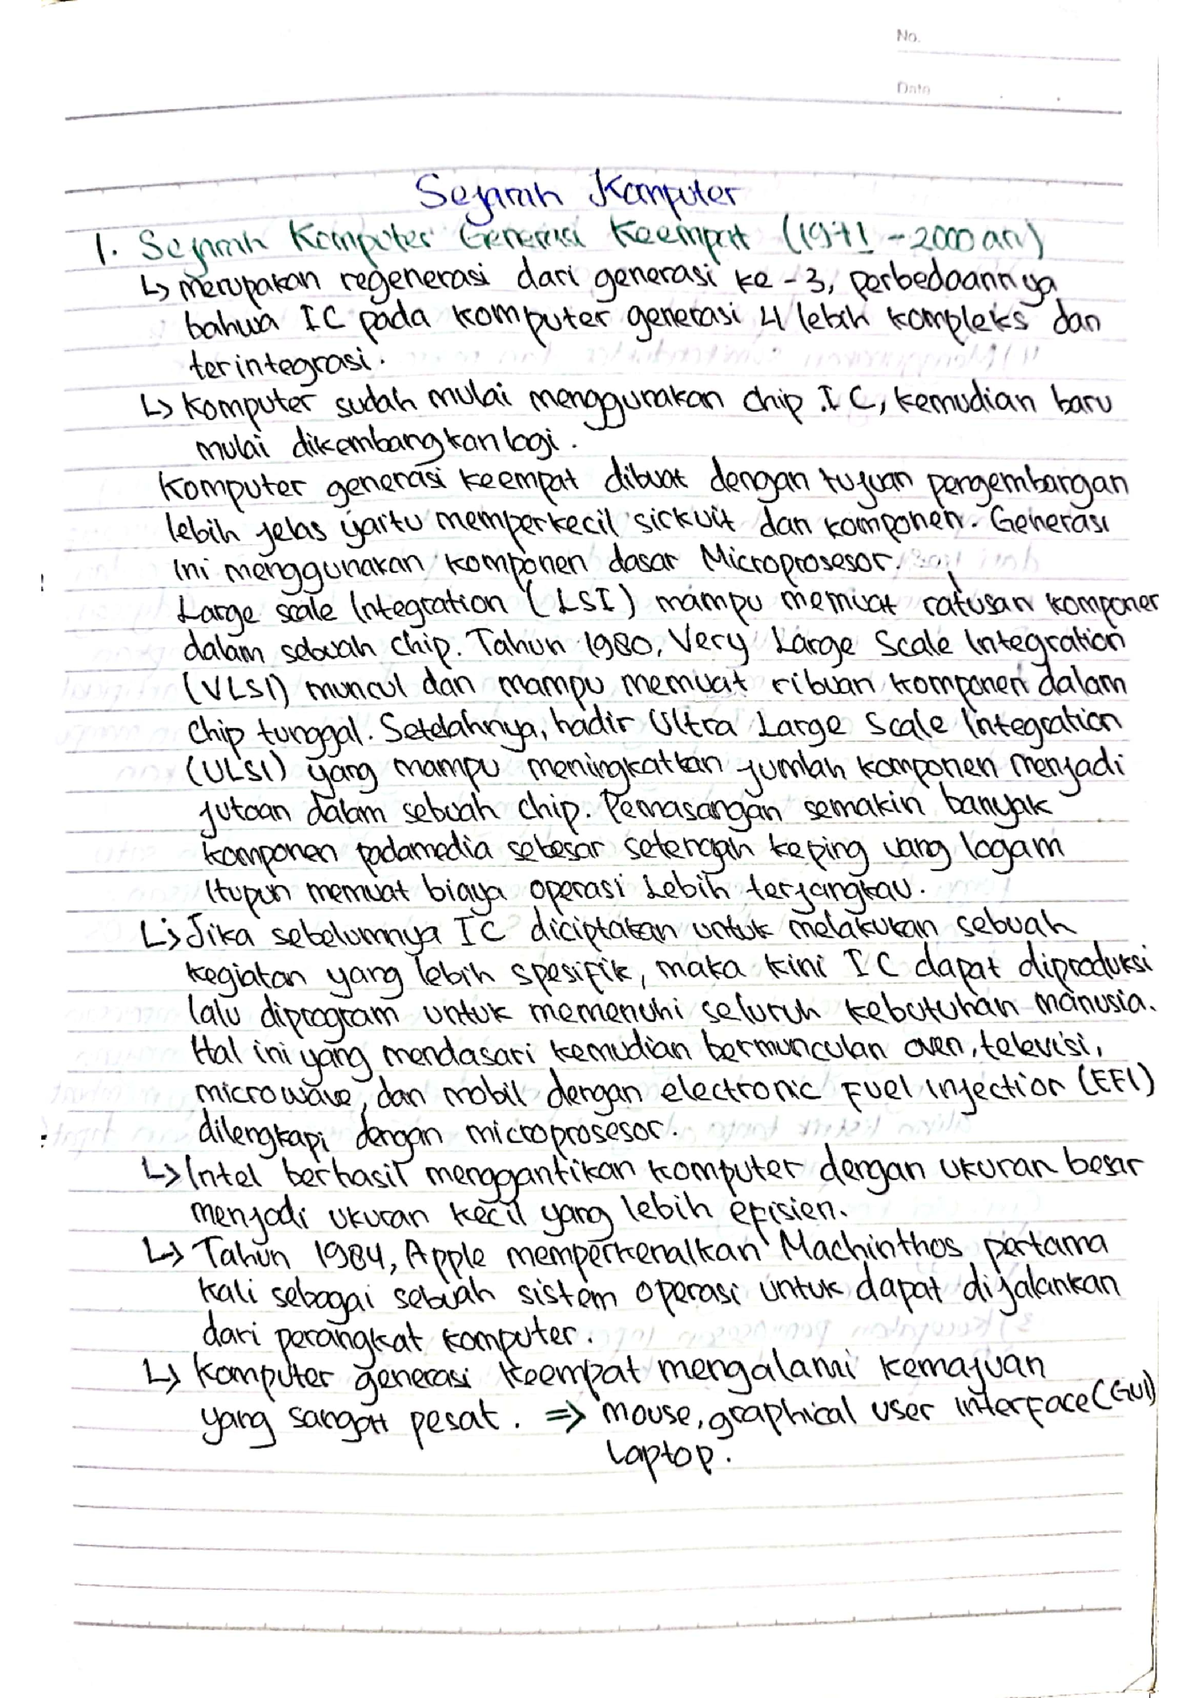 No.
Date
Sejarah Komputer
1. Sejarah Komputer Generasi Keempat (1971 - 2000an)
↳ merupakan regenerasi dari generasi ke-3, perbedaannya
bahwa IC pada komputer generasi 4 lebih kompleks dan
terintegrasi.
↳ Komputer sudah mulai menggunakan chip IC, kemudian baru
mulai dikembangkan lagi.
Komputer generasi keempat dibuat dengan tujuan pengembangan
lebih jelas yaitu memperkecil sirkuit dan komponen. Generasi
ini menggunakan komponen dasar Microprosesor.
Large scale Integration (LSI) mampu memuat ratusan komponen
dalam sebuah chip. Tahun 1980, Very Large Scale Integration
(VLSI) muncul dan mampu memuat ribuan komponen dalam
chip tunggal. Setelahnya, hadir Ultra Large Scale Integration
(ULSI) yang mampu meningkatkan jumlah komponen menjadi
jutaan dalam sebuah chip. Pemasangan semakin banyak
komponen padamedia sebesar setengah keping uang logam
itupun memuat biaya operasi Lebih terjangkau.
↳ Jika sebelumnya IC diciptakan untuk melakukan sebuah
kegiatan yang lebih spesifik, maka kini IC dapat diproduksi
lalu diprogram untuk memenuhi seluruh kebutuhan manusia.
Hal ini yang mendasari kemudian bermunculan oven, televisi,
microwave, dan mobil dengan electronic Fuel Injection (EFI)
dilengkapi dengan microprosesor.
↳ Intel berhasil menggantikan komputer dengan ukuran besar
menjadi ukuran kecil yang lebih efisien.
↳ Tahun 1984, Apple memperkenalkan Machinthos pertama
kali sebagai sebuah sistem operasi untuk dapat dijalankan
dari perangkat komputer.
↳ Komputer generasi keempat mengalami kemajuan
yang sangat pesat. => mouse, graphical user interface (GUI)
Laptop.